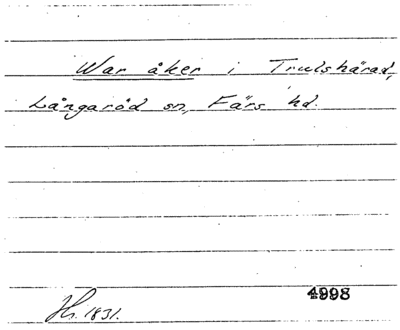 War åker i Trulshärad,
Långaröd sn, Färs hd.
Hs. 1831.
4998